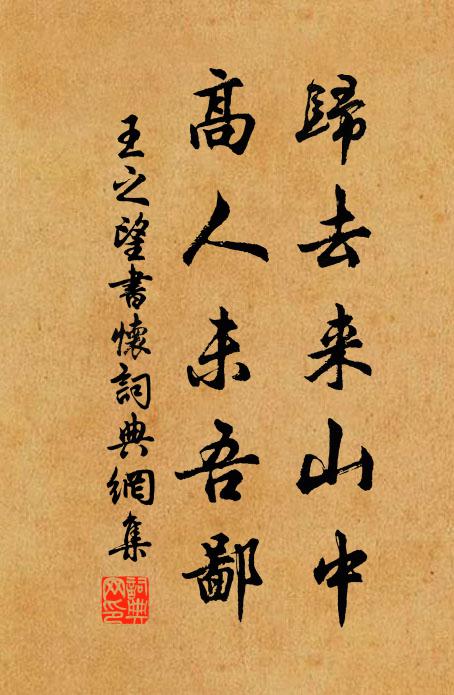 歸去来山中
高人未吾鄙
王之望書懷詞典網集
詞典网印